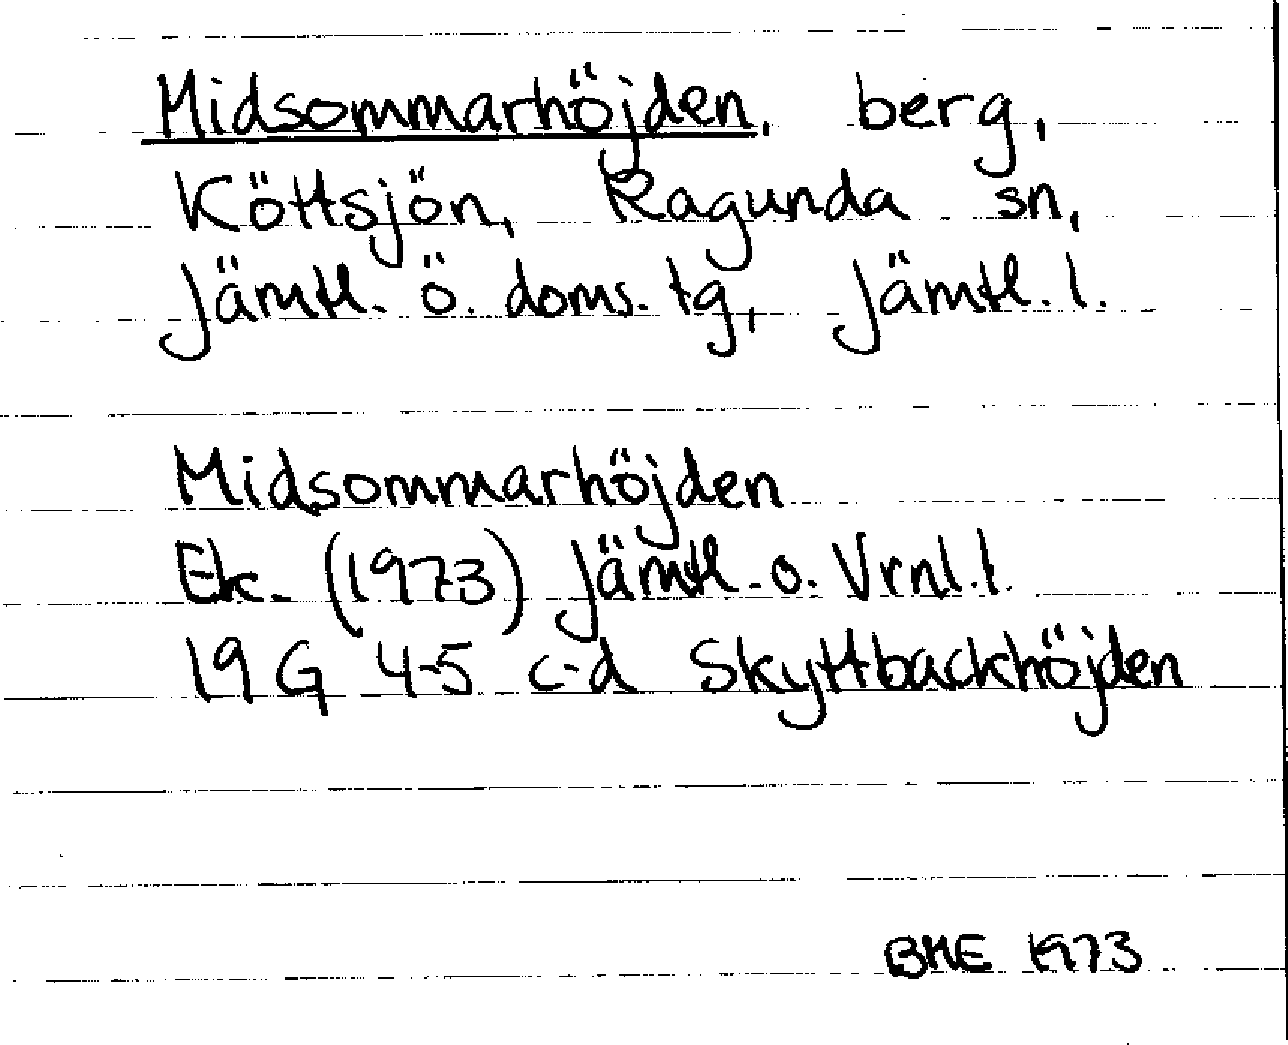 Midsommarhöjden, berg,
Köttsjön, Ragunda sn,
Jämtl. ö. doms. tg, Jämtl. l.
Midsommarhöjden
Ek. (1973) Jämtl. o. Vrnl. l.
19 G 4-5 c-d Skyttbackhöjden
BME 1973